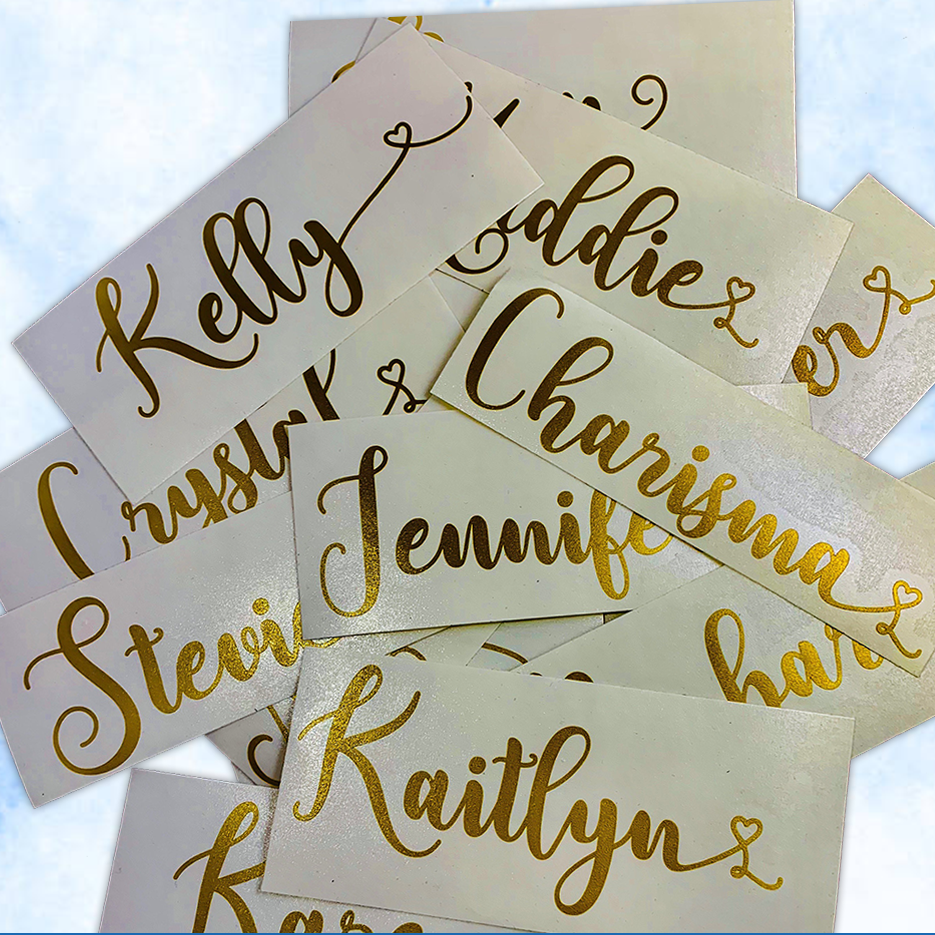 Kelly
ddie
er
Charisma
Crystal
Jennife
Stevi
har
Kaitlyn
Kar